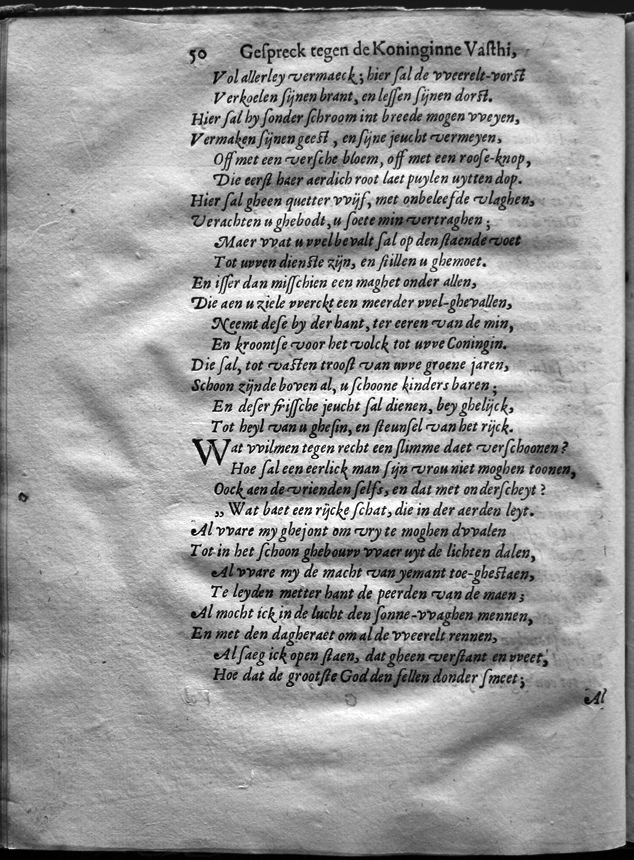 50 Geſpreck tegen de Koninginne Vaſthi,
Vol allerley vermaeck; hier ſal de vveerelt-vorſt
Verkoelen ſijnen brant, en leſſen ſijnen dorſt.
Hier ſal hy ſonder ſchroom int breede mogen vveyen,
Vermaken ſijnen geeſt, en ſijne jeucht vermeyen,
Off met een verſche bloem, off met een rooſe-knop,
Die eerſt haer aerdich root laet puylen uytten dop.
Hier ſal gheen quetter vvijf, met onbeleefde vlaghen,
Verachten u ghebodt, u ſoete min vertraghen;
Maer vvat u vvel bevalt ſal op den ſtaende voet
Tot uvven dienſte zijn, en ſtillen u ghemoet.
En iſſer dan miſſchien een maghet onder allen,
Die aen u ziele vverckt een meerder vvel-ghevallen,
Neemt deſe by der hant, ter eeren van de min,
En kroontſe voor het volck tot uvve Coningin.
Die ſal, tot vaſten trooſt van uvve groene jaren,
Schoon zijnde boven al, u ſchoone kinders baren;
En deſer friſſche jeucht ſal dienen, bey ghelijck,
Tot heyl van u gheſin, en ſteunſel van het rijck.
Wat vvilmen tegen recht een ſlimme daet verſchoonen?
Hoe ſal een eerlick man ſijn vrou niet moghen toonen,
Oock aen de vrienden ſelfs, en dat met onderſcheyt?
„ Wat baet een rijcke ſchat, die in der aerden leyt.
Al vvare my ghejont om vry te moghen dvvalen
Tot in het ſchoon ghebouvv vvaer uyt de lichten dalen,
Al vvare my de macht van yemant toe-gheſtaen,
Te leyden metter hant de peerden van de maen;
Al mocht ick in de lucht den ſonne-vvaghen mennen,
En met den dagheraet om al de vveerelt rennen,
Al ſaeg ick open ſtaen, dat gheen verſtant en vveet,
Hoe dat de grootſte God den fellen donder ſmeet;
Al